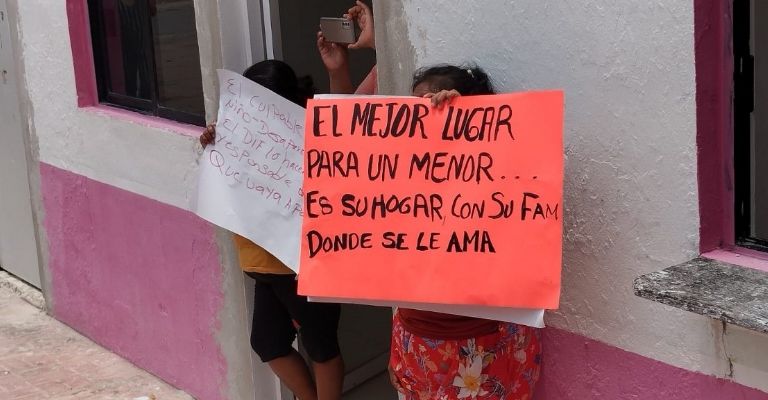 El culpable
niño-Desapar
El DIF lo hace
responsable
Que vaya A
EL MEJOR LUGAR
PARA UN MENOR...
ES SU HOGAR, CON SU FAM
DONDE SE LE AMA